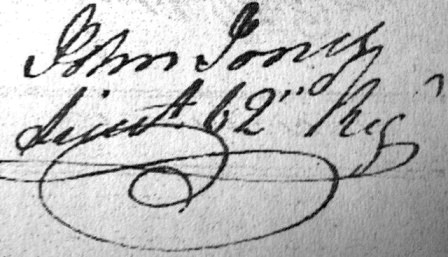 John Jones
Lieut 62" Reg"